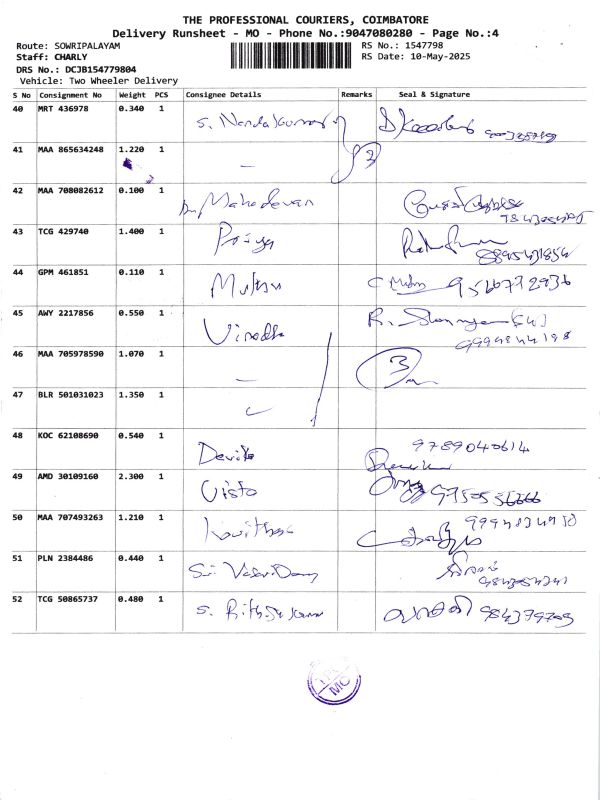 THE PROFESSIONAL COURIERS, COIMBATORE
Delivery Runsheet - MO - Phone No.:9047080280 - Page No.:4
Route: SOWRIPALAYAM RS No.: 1547798
Staff: CHARLY RS Date: 10-May-2025
DRS No.: DCJB154779804
Vehicle: Two Wheeler Delivery
S No Consignment No Weight PCS Consignee Details Remarks Seal & Signature
40 MRT 436978 0.340 1 S. Nandakumar
41 MAA 865634248 1.220 1 3
42 MAA 708082612 0.100 1 Mahadevan
43 TCG 429740 1.400 1 Priya 8895431854
44 GPM 461851 0.110 1 Muthu 9566772936
45 AWY 2217856 0.550 1 Vinodha
9994844198
46 MAA 705978590 1.070 1 3
47 BLR 501031023 1.350 1
48 KOC 62108690 0.540 1 Devika 9789040614
49 AMD 30109160 2.300 1 Visto
50 MAA 707493263 1.210 1 Kavitha
51 PLN 2384486 0.440 1 Sri
52 TCG 50865737 0.480 1 S.
MC